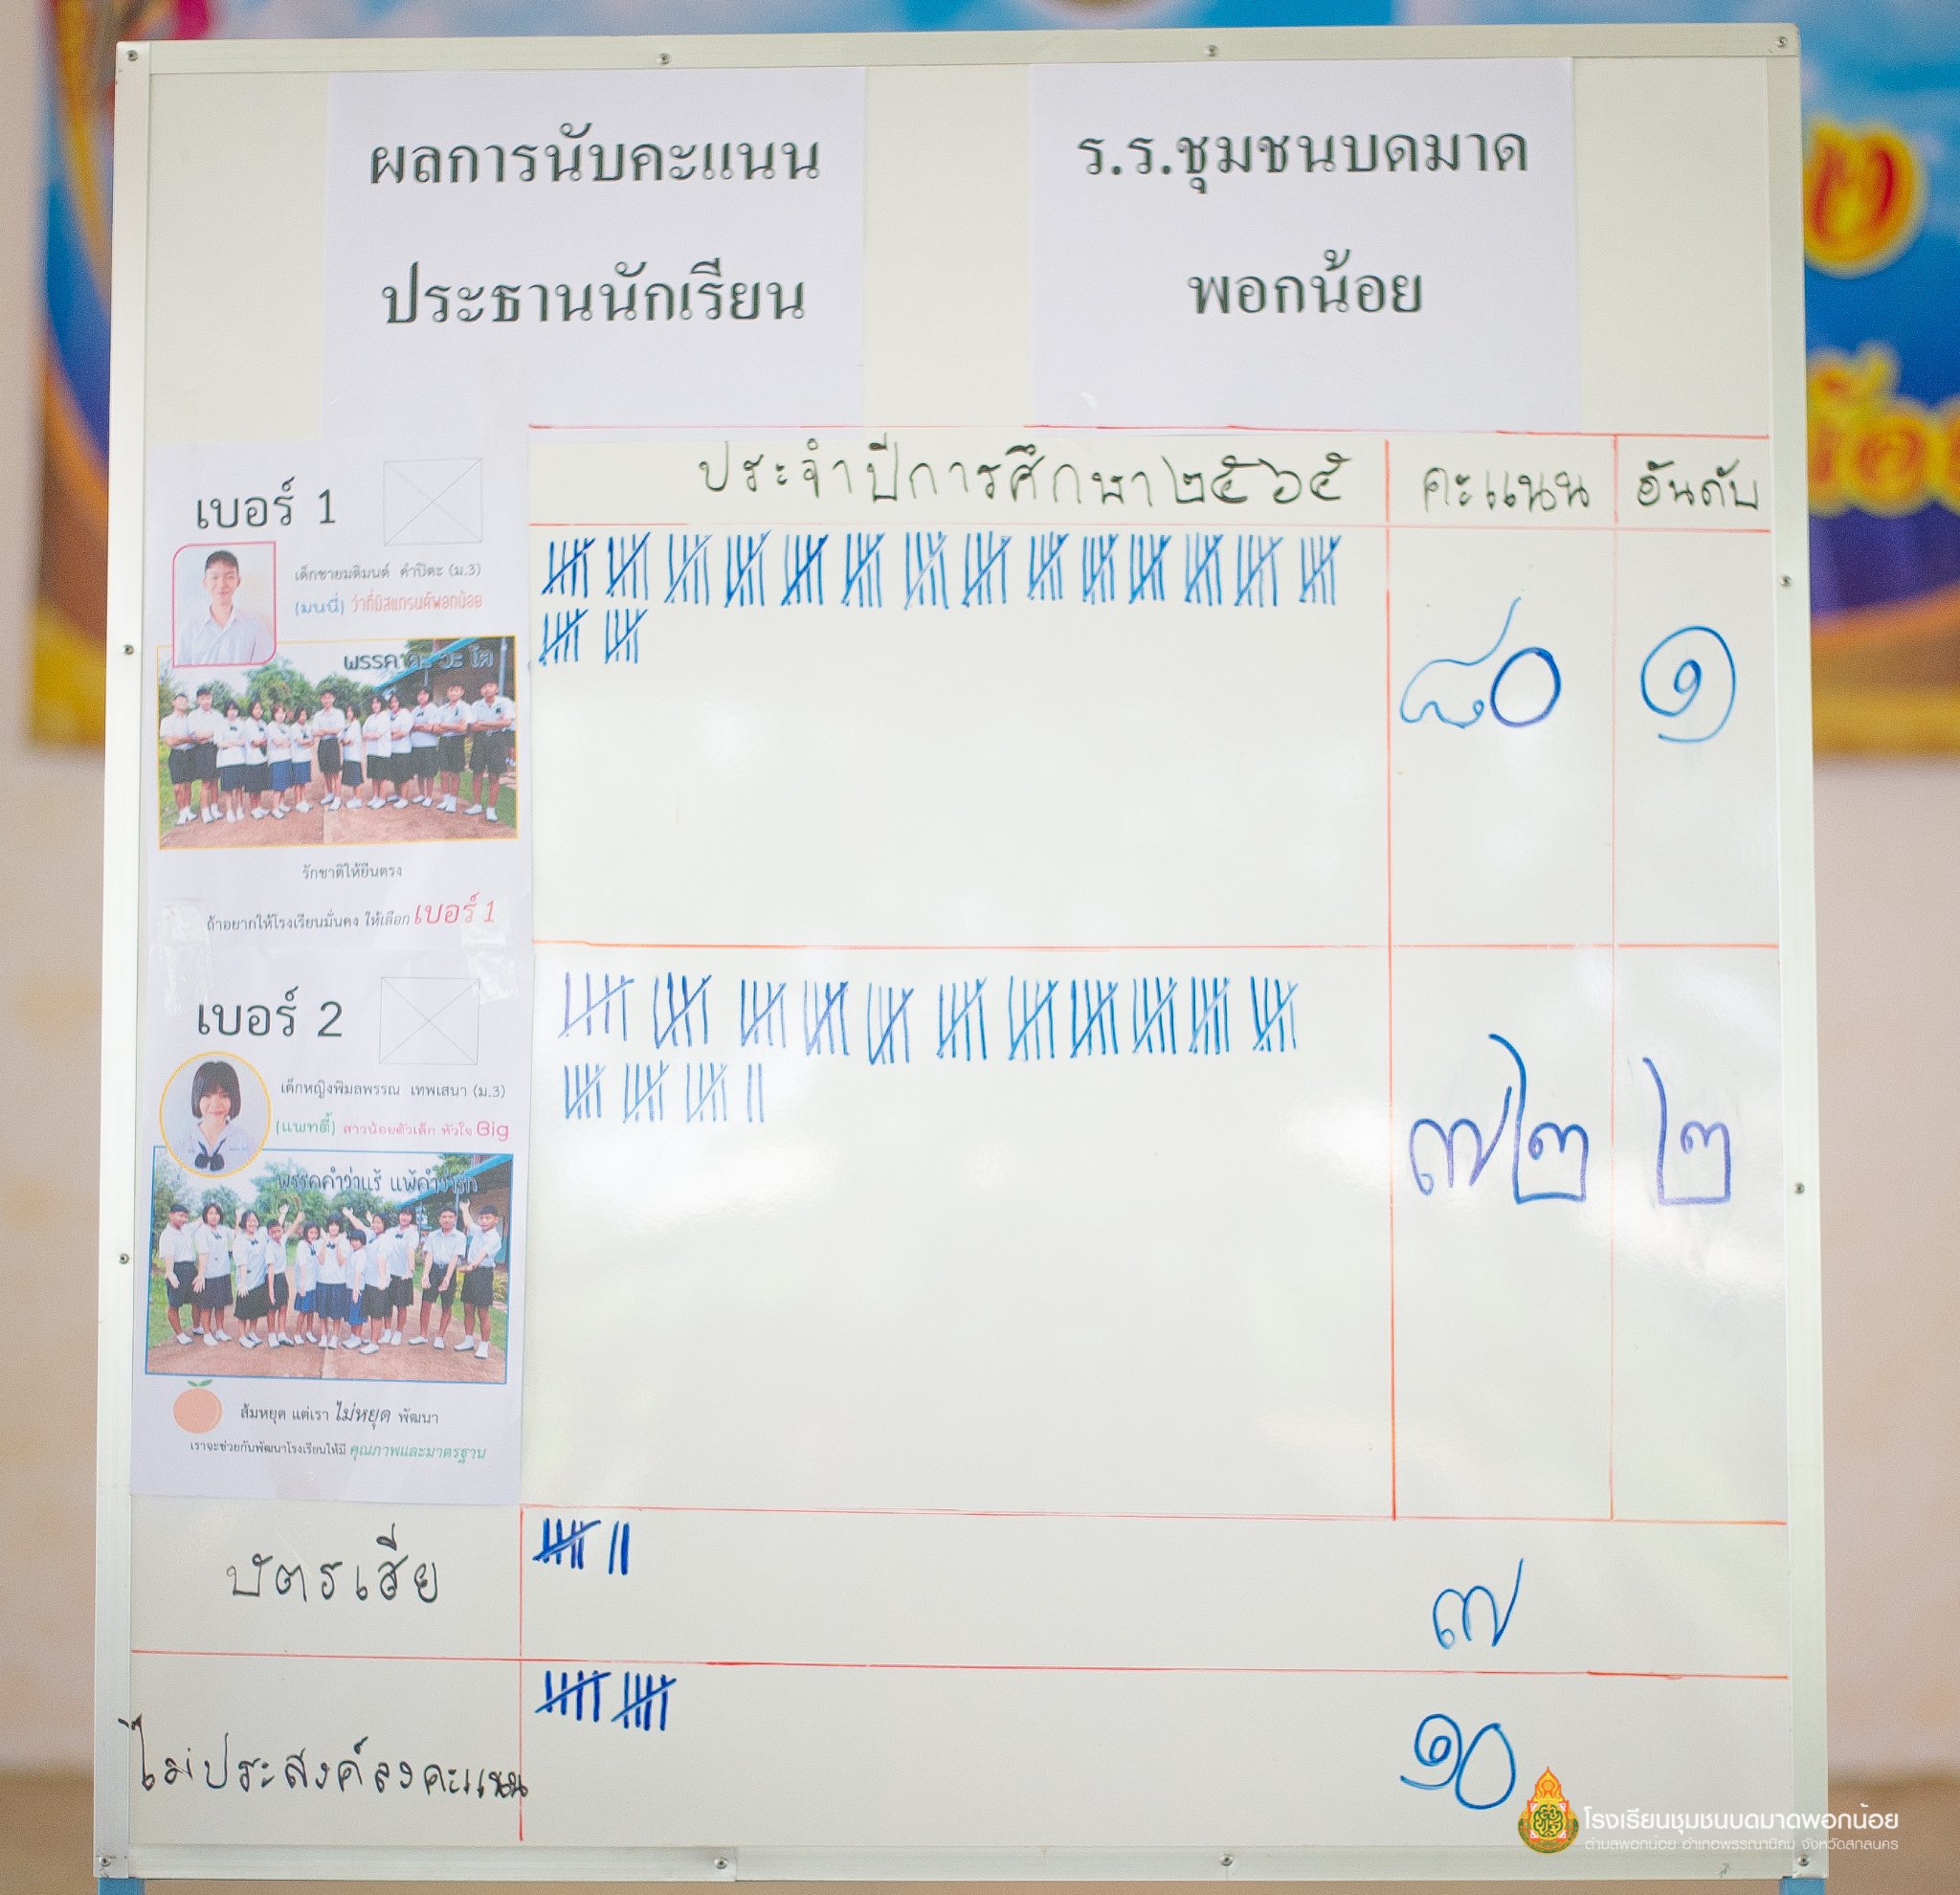 ผลการนับคะแนน
ประธานนักเรียน
ร.ร.ชุมชนบดมาด
พอกน้อย
ประจำปีการศึกษา๒๕๖๕
คะแนน
อันดับ
เบอร์ 1
เด็กชายมติมนต์ คำปิตะ (ม.3)
(มนนี่) ว่าที่มิสแกรนด์พอกน้อย
พรรค
รักชาติให้ยืนตรง
ถ้าอยากให้โรงเรียนมั่นคง ให้เลือก เบอร์ 1
๘๐
๑
เบอร์ 2
เด็กหญิงพิมลพรรณ เทพเสนา (ม.3)
(แพทตี้) สาวน้อยตัวเล็ก หัวใจ Big
พรรคคำว่าแร้ แพ้คำว่ารัก
ส้มหยุด แต่เรา ไม่หยุด พัฒนา
เราจะช่วยกันพัฒนาโรงเรียนให้มี คุณภาพและมาตรฐาน
๗๒
๒
บัตรเสีย
๗
ไม่ประสงค์ลงคะแนน
๑๐
โรงเรียนชุมชนบดมาดพอกน้อย
ตำบลพอกน้อย อำเภอพรรณานิคม จังหวัดสกลนคร